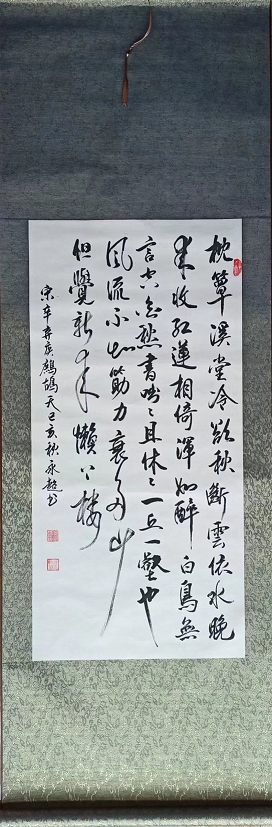 枕簟溪堂冷欲秋斷雲依水晚
来收红蓮相倚渾如醉白鳥無
言定自愁書咄〻且休〻一丘一壑也
風流不知筋力衰多少
但覺新来懶上樓
宋辛弃疾鷓鴣天己亥秋永超书